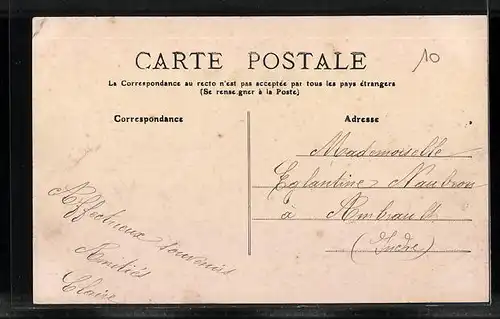 10
CARTE POSTALE
La Correspondance au recto n'est pas acceptée par tous les pays étrangers
(Se renseigner à la Poste)
Correspondance
Adresse
Mademoiselle
Eglantine Naubron
à Ambrault
(Indre)
Affectueux souvenirs
Amitiés
Claire